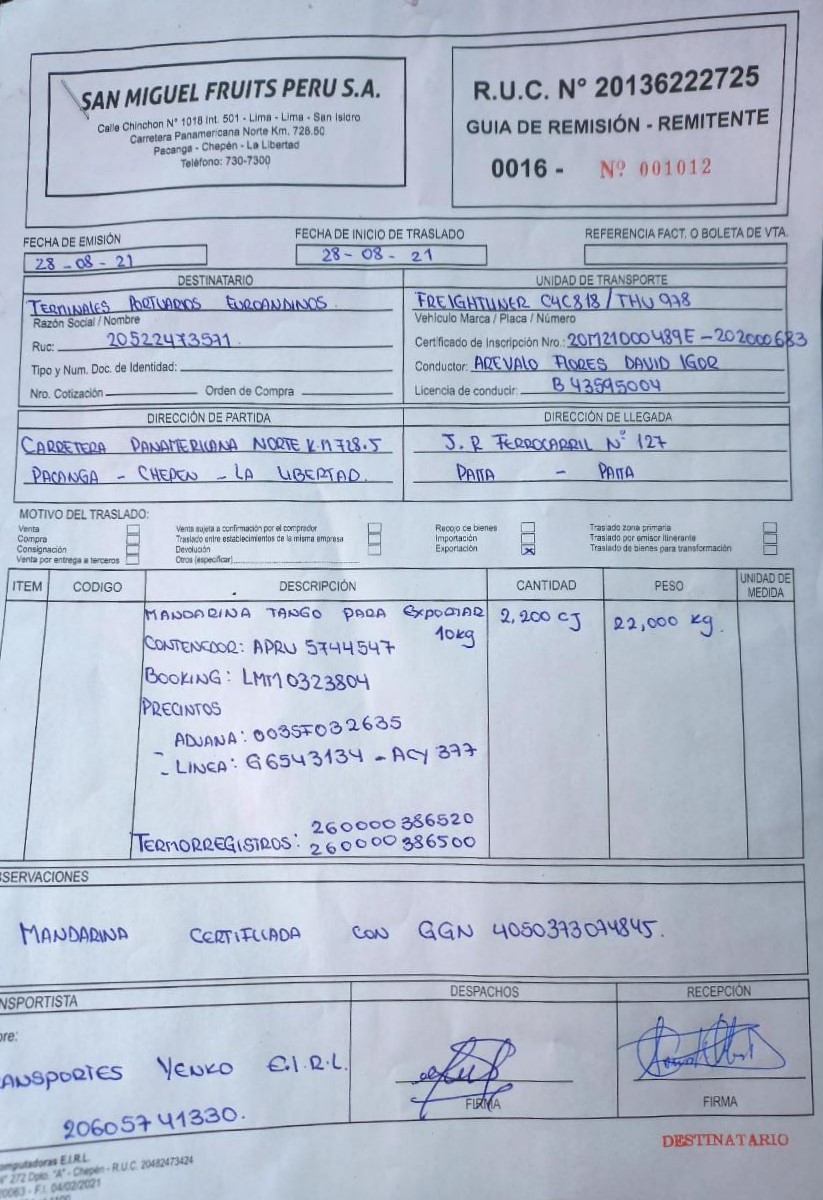 SAN MIGUEL FRUITS PERU S.A.
Calle Chinchon N° 1018 Int. 501 - Lima - Lima - San Isidro
Carretera Panamericana Norte Km. 728.50
Pacanga - Chepén - La Libertad
Teléfono: 730-7300
R.U.C. N° 20136222725
GUIA DE REMISIÓN - REMITENTE
0016 - Nº 001012
FECHA DE EMISIÓN
28-08-21
FECHA DE INICIO DE TRASLADO
28-08-21
REFERENCIA FACT. O BOLETA DE VTA.
DESTINATARIO
TERMINALES PORTUARIOS EUROANDINOS
Razón Social / Nombre
Ruc: 20522473571.
Tipo y Num. Doc. de Identidad:
Nro. Cotización Orden de Compra
UNIDAD DE TRANSPORTE
FREIGHTLINER C4C818 / THU 978
Vehículo Marca / Placa / Número
Certificado de Inscripción Nro.: 20M21000489E - 202000683
Conductor: AREVALO FLORES DAVID IGOR
Licencia de conducir: B43595004
DIRECCIÓN DE PARTIDA
CARRETERA PANAMERICANA NORTE K.M 728.5
PACANGA - CHEPEN - LA LIBERTAD.
DIRECCIÓN DE LLEGADA
J.R FERROCARRIL N° 127
PAITA - PAITA
MOTIVO DEL TRASLADO:
Venta
Compra
Consignación
Venta por entrega a terceros
Venta sujeta a confirmación por el comprador
Traslado entre establecimientos de la misma empresa
Devolución
Otros (especificar)
Recojo de bienes
Importación
Exportación X
Traslado zona primaria
Traslado por emisor itinerante
Traslado de bienes para transformación
ITEM CODIGO DESCRIPCIÓN CANTIDAD PESO UNIDAD DE MEDIDA
MANDARINA TANGO PARA EXPORTAR 2,200 CJ 22,000 kg.
10kg
CONTENEDOR: APRU 5744547
BOOKING: LMM0323804
PRECINTOS
- ADUANA: 0035F032635
- LINEA: G6543134 - ACY 377
260000386520
TERMORREGISTROS: 260000386500
SERVACIONES
MANDARINA CERTIFICADA CON GGN 4050373074845.
NSPORTISTA
bre:
ANSPORTES YENKO E.I.R.L.
20605741330.
DESPACHOS
FIRMA
RECEPCIÓN
FIRMA
DESTINATARIO
omputadoras E.I.R.L.
N° 272 Dpto. "A" - Chepén - R.U.C. 20482473424
20063 - F.I. 04/02/2021